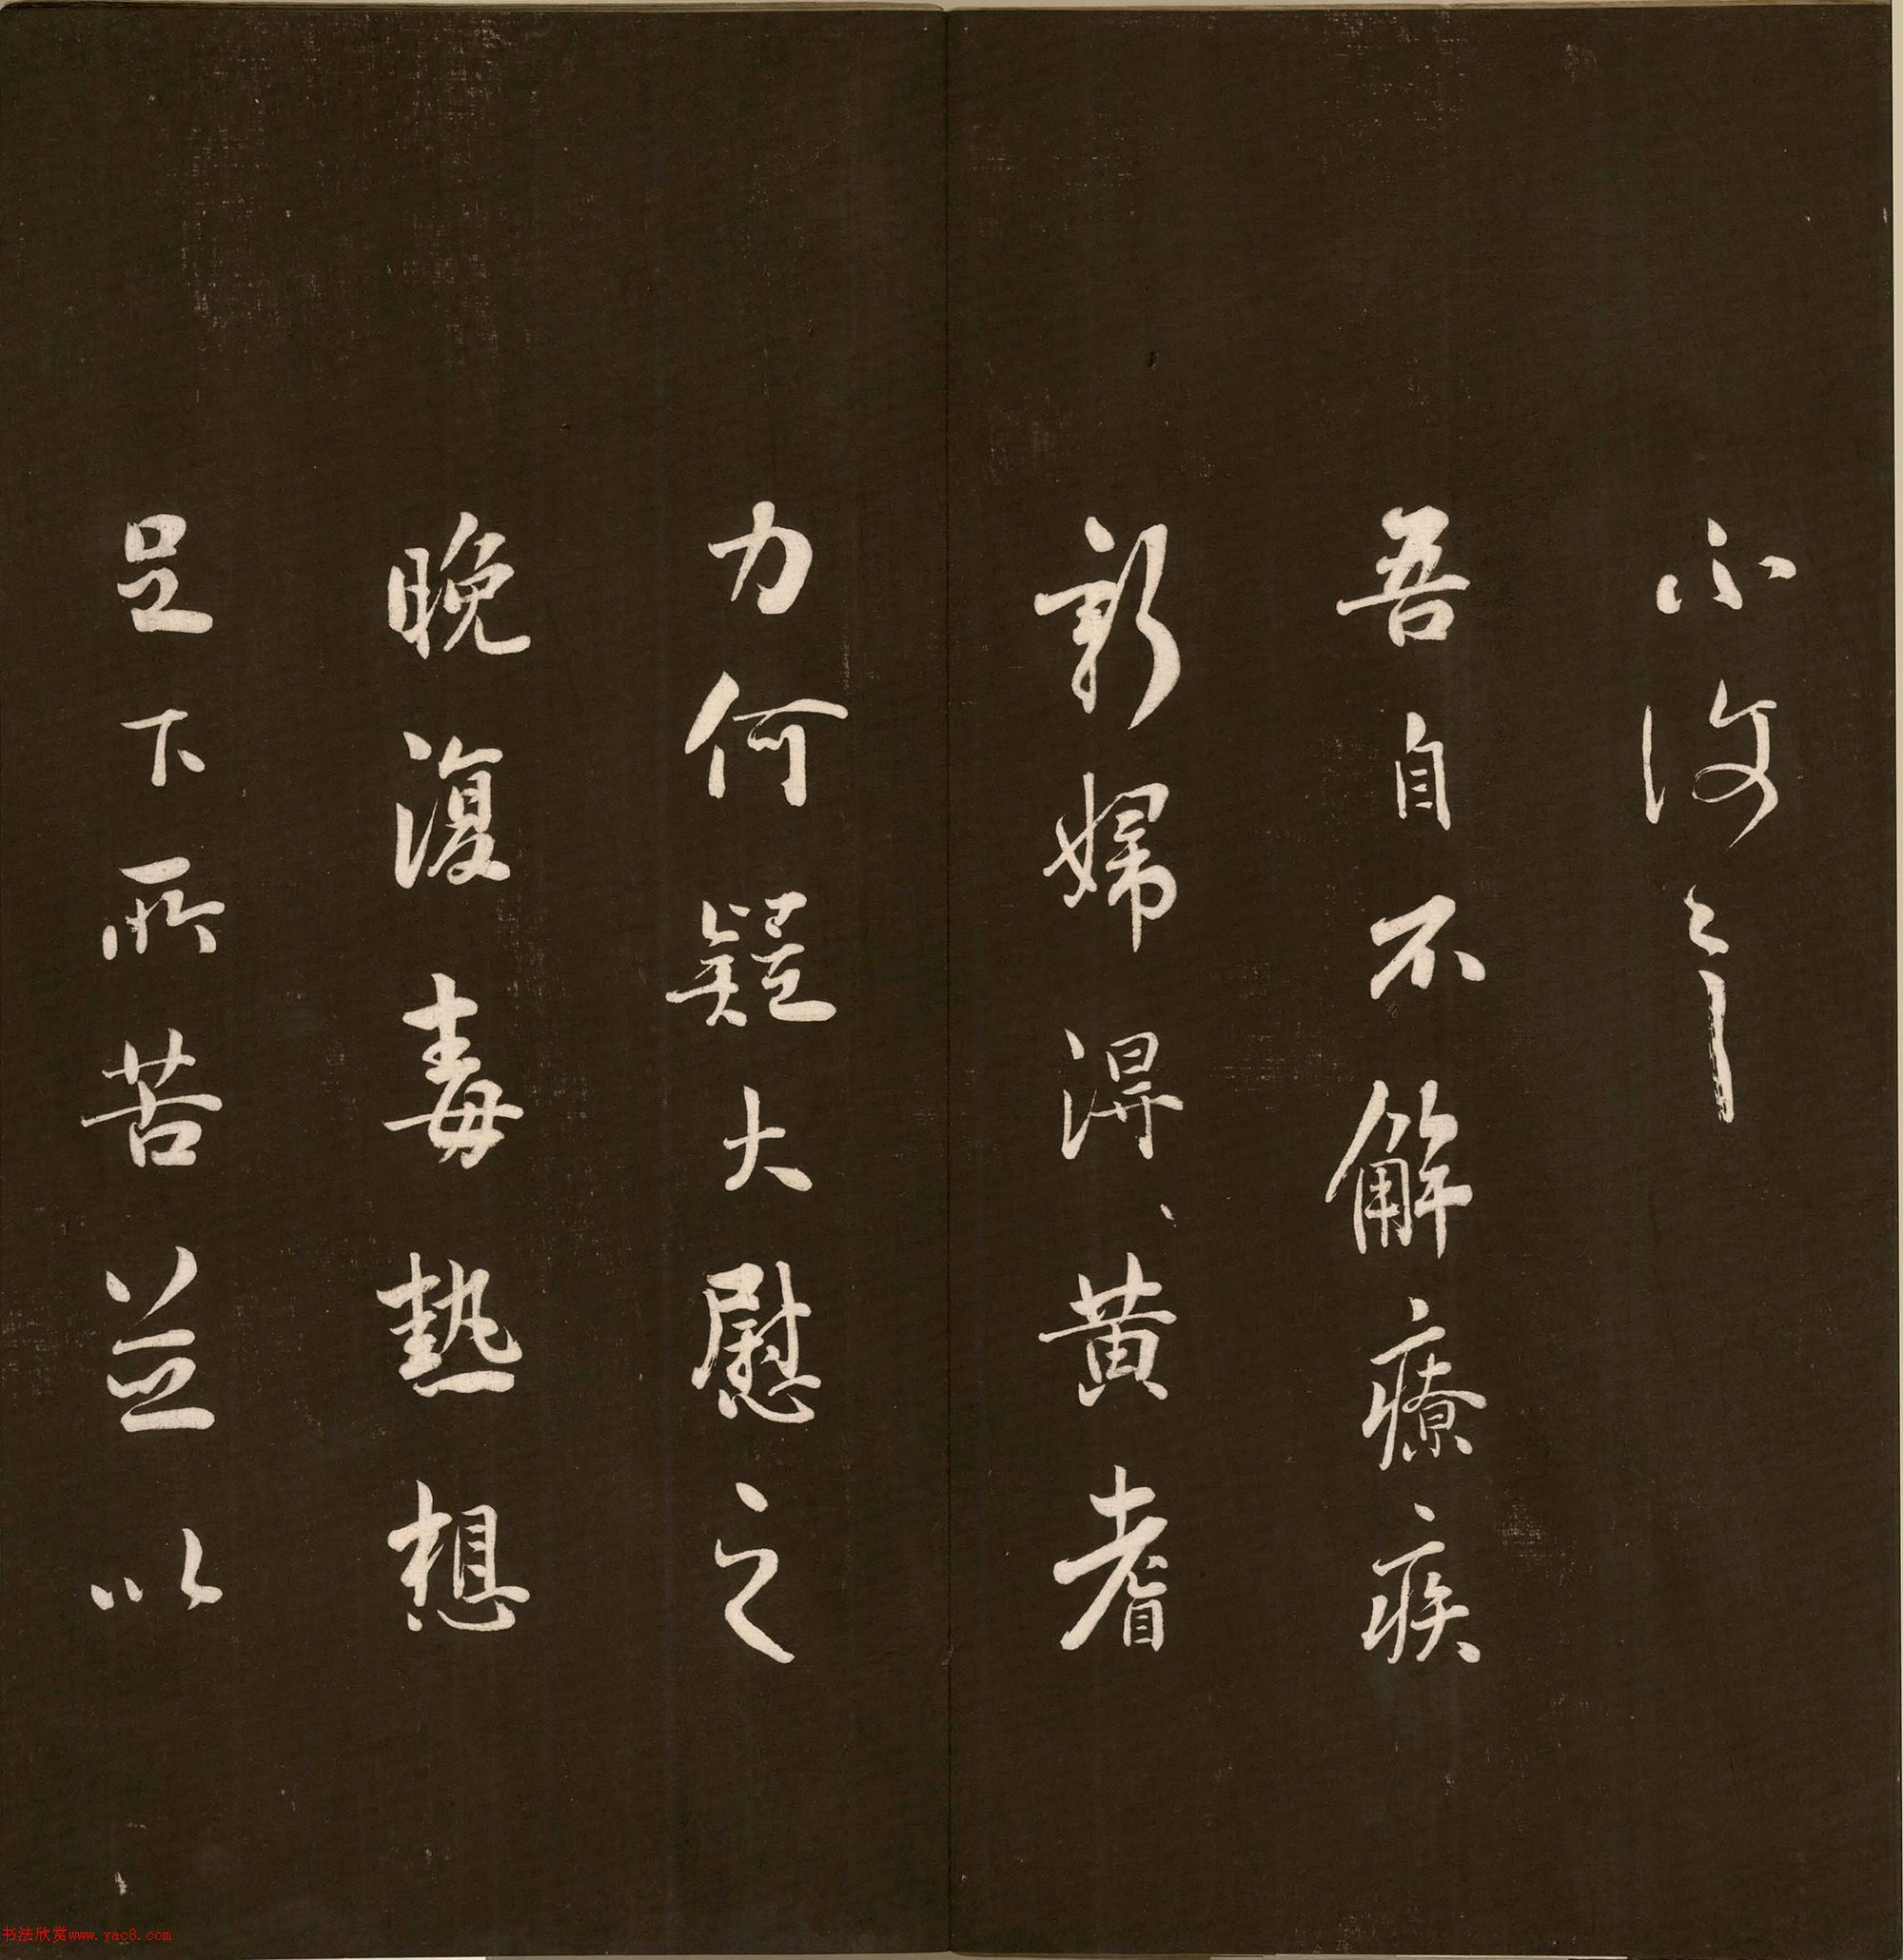 不復
吾自不解療疾
新婦得、黄耆
力何疑大慰之
晚復毒熱想
足下所苦並以
书法欣赏www.yac8.com